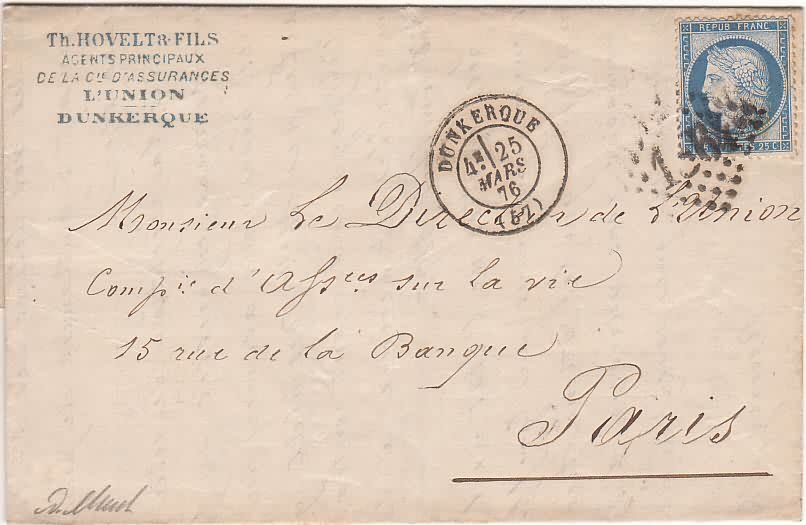 TH. HOVELT & FILS
AGENTS PRINCIPAUX
DE LA CIE D'ASSURANCES
L'UNION
DUNKERQUE
REPUB FRANC
25 C
DUNKERQUE
4E 25
MARS
76
(57)
Monsieur Le Directeur de L'Union
Compie d'Assces sur la vie
15 rue de la Banque
Paris